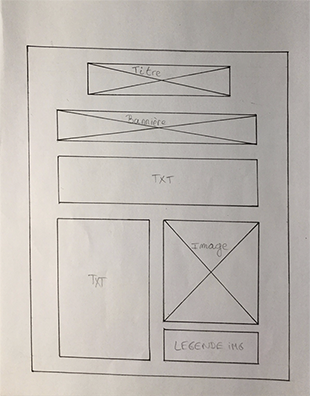 Titre
Bannière
TXT
TXT
Image
LEGENDE IMG